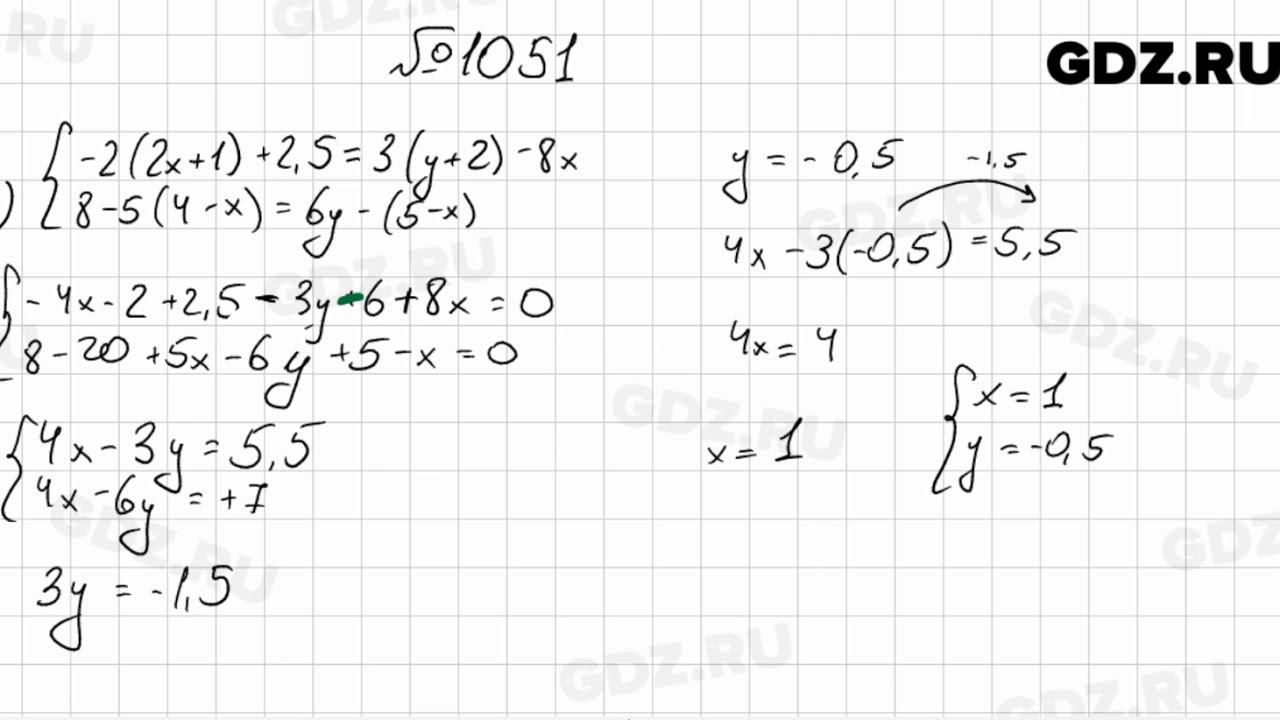 №1051
GDZ.RU
) { -2(2x+1)+2,5=3(y+2)-8x
8-5(4-x)=6y-(5-x)
{ -4x-2+2,5-3y-6+8x=0
8-20+5x-6y+5-x=0
{ 4x-3y=5,5
4x-6y=+7
3y=-1,5
y=-0,5
-1,5
4x-3(-0,5)=5,5
4x=4
x=1
{ x=1
y=-0,5